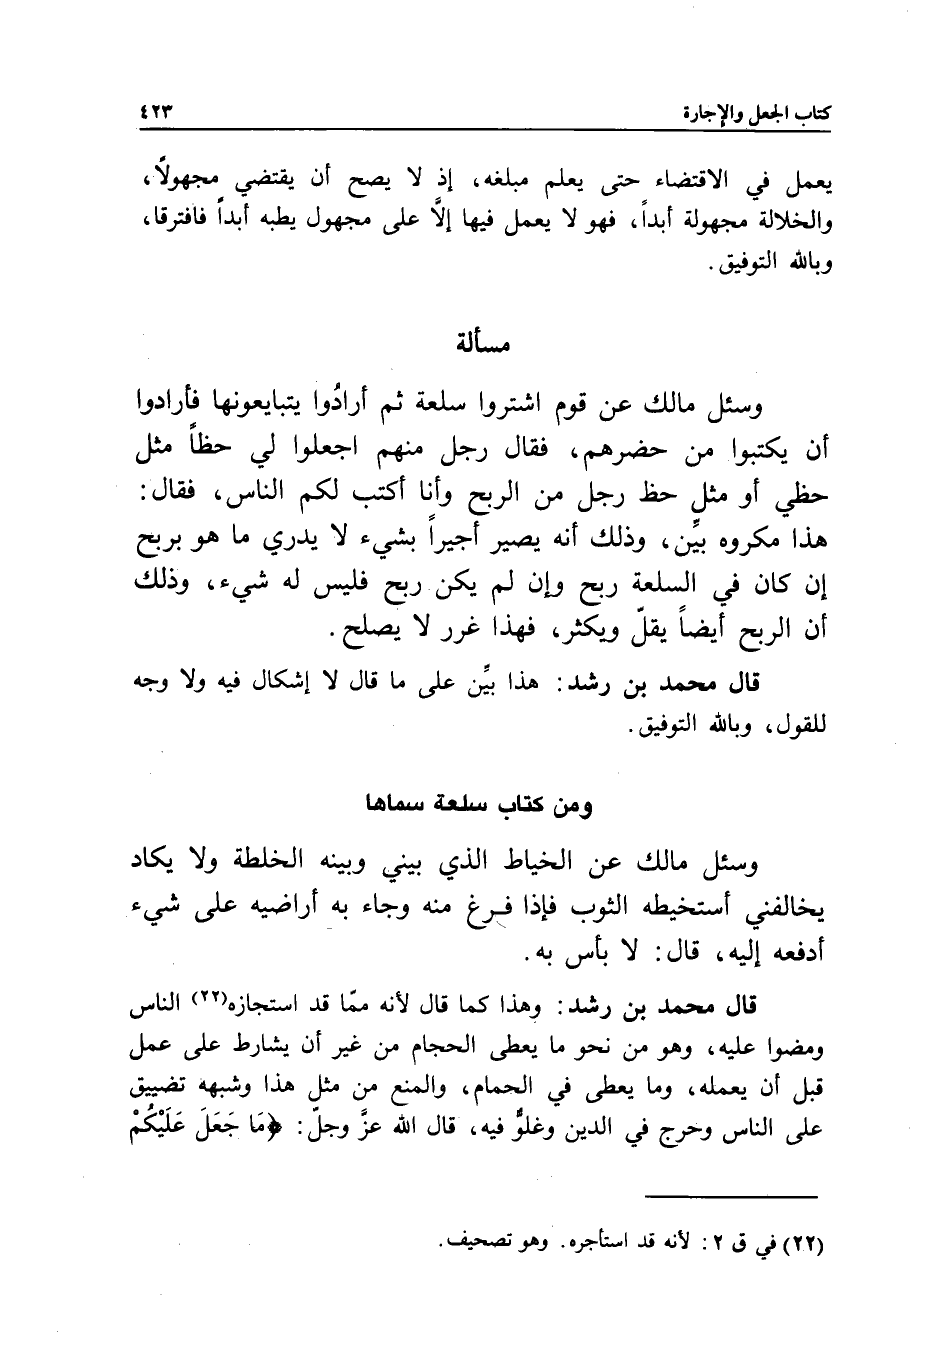 كتاب الجعل والإجارة ٤٢٣
يعمل في الاقتضاء حتى يعلم مبلغه، إذ لا يصح أن يقتضي مجهولاً،
والخلالة مجهولة أبداً، فهو لا يعمل فيها إلاَّ على مجهول يطبه أبداً فافترقا،
وبالله التوفيق.
مسألة
وسئل مالك عن قوم اشتروا سلعة ثم أرادُوا يتبايعونها فأرادوا
أن يكتبوا من حضرهم، فقال رجل منهم اجعلوا لي حظاً مثل
حظي أو مثل حظ رجل من الربح وأنا أكتب لكم الناس، فقال:
هذا مكروه بيِّن، وذلك أنه يصير أجيراً بشيء لا يدري ما هو بربح
إن كان في السلعة ربح وإن لم يكن ربح فليس له شيء، وذلك
أن الربح أيضاً يقلّ ويكثر، فهذا غرر لا يصلح.
قال محمد بن رشد: هذا بيِّن على ما قال لا إشكال فيه ولا وجه
للقول، وبالله التوفيق.
ومن كتاب سلعة سماها
وسئل مالك عن الخياط الذي بيني وبينه الخلطة ولا يكاد
يخالفني أستخيطه الثوب فإذا فرغ منه وجاء به أراضيه على شيء
أدفعه إليه، قال: لا بأس به.
قال محمد بن رشد: وهذا كما قال لأنه ممّا قد استجازه(٢٢) الناس
ومضوا عليه، وهو من نحو ما يعطى الحجام من غير أن يشارط على عمل
قبل أن يعمله، وما يعطى في الحمام، والمنع من مثل هذا وشبهه تضييق
على الناس وحرج في الدين وغلوٌّ فيه، قال الله عزَّ وجلّ: ﴿مَا جَعَلَ عَلَيْكُمْ
(٢٢) في ق ٢: لأنه قد استأجره. وهو تصحيف.